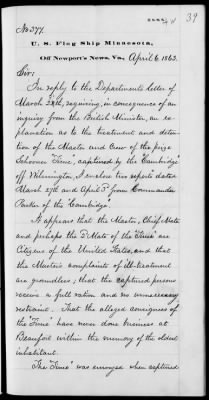 39
No 377.
U. S. Flag Ship Minnesota,
Off Newport's News, Va., April 6, 1863.
Sir:
In reply to the Department's letter of
March 28th, requiring, in consequence of an
inquiry from the British Minister, an ex-
planation as to the treatment and deten-
tion of the Master and Crew of the prize
Schooner "Time", captured by the "Cambridge"
off Wilmington, I enclose two reports dated
March 27th and April 1st from Commander
Parker of the "Cambridge".
It appears that the Master, Chief Mate
and perhaps the 2d Mate of the "Time" are
Citizens of the United States, and that
the Master's complaints of ill-treatment
are groundless; that the captured persons
receive a full ration and no unnecessary
restraint. That the alleged consignees of
the "Time" have never done business at
Beaufort within the memory of the oldest
inhabitant.
The "Time" was unmoored when captured